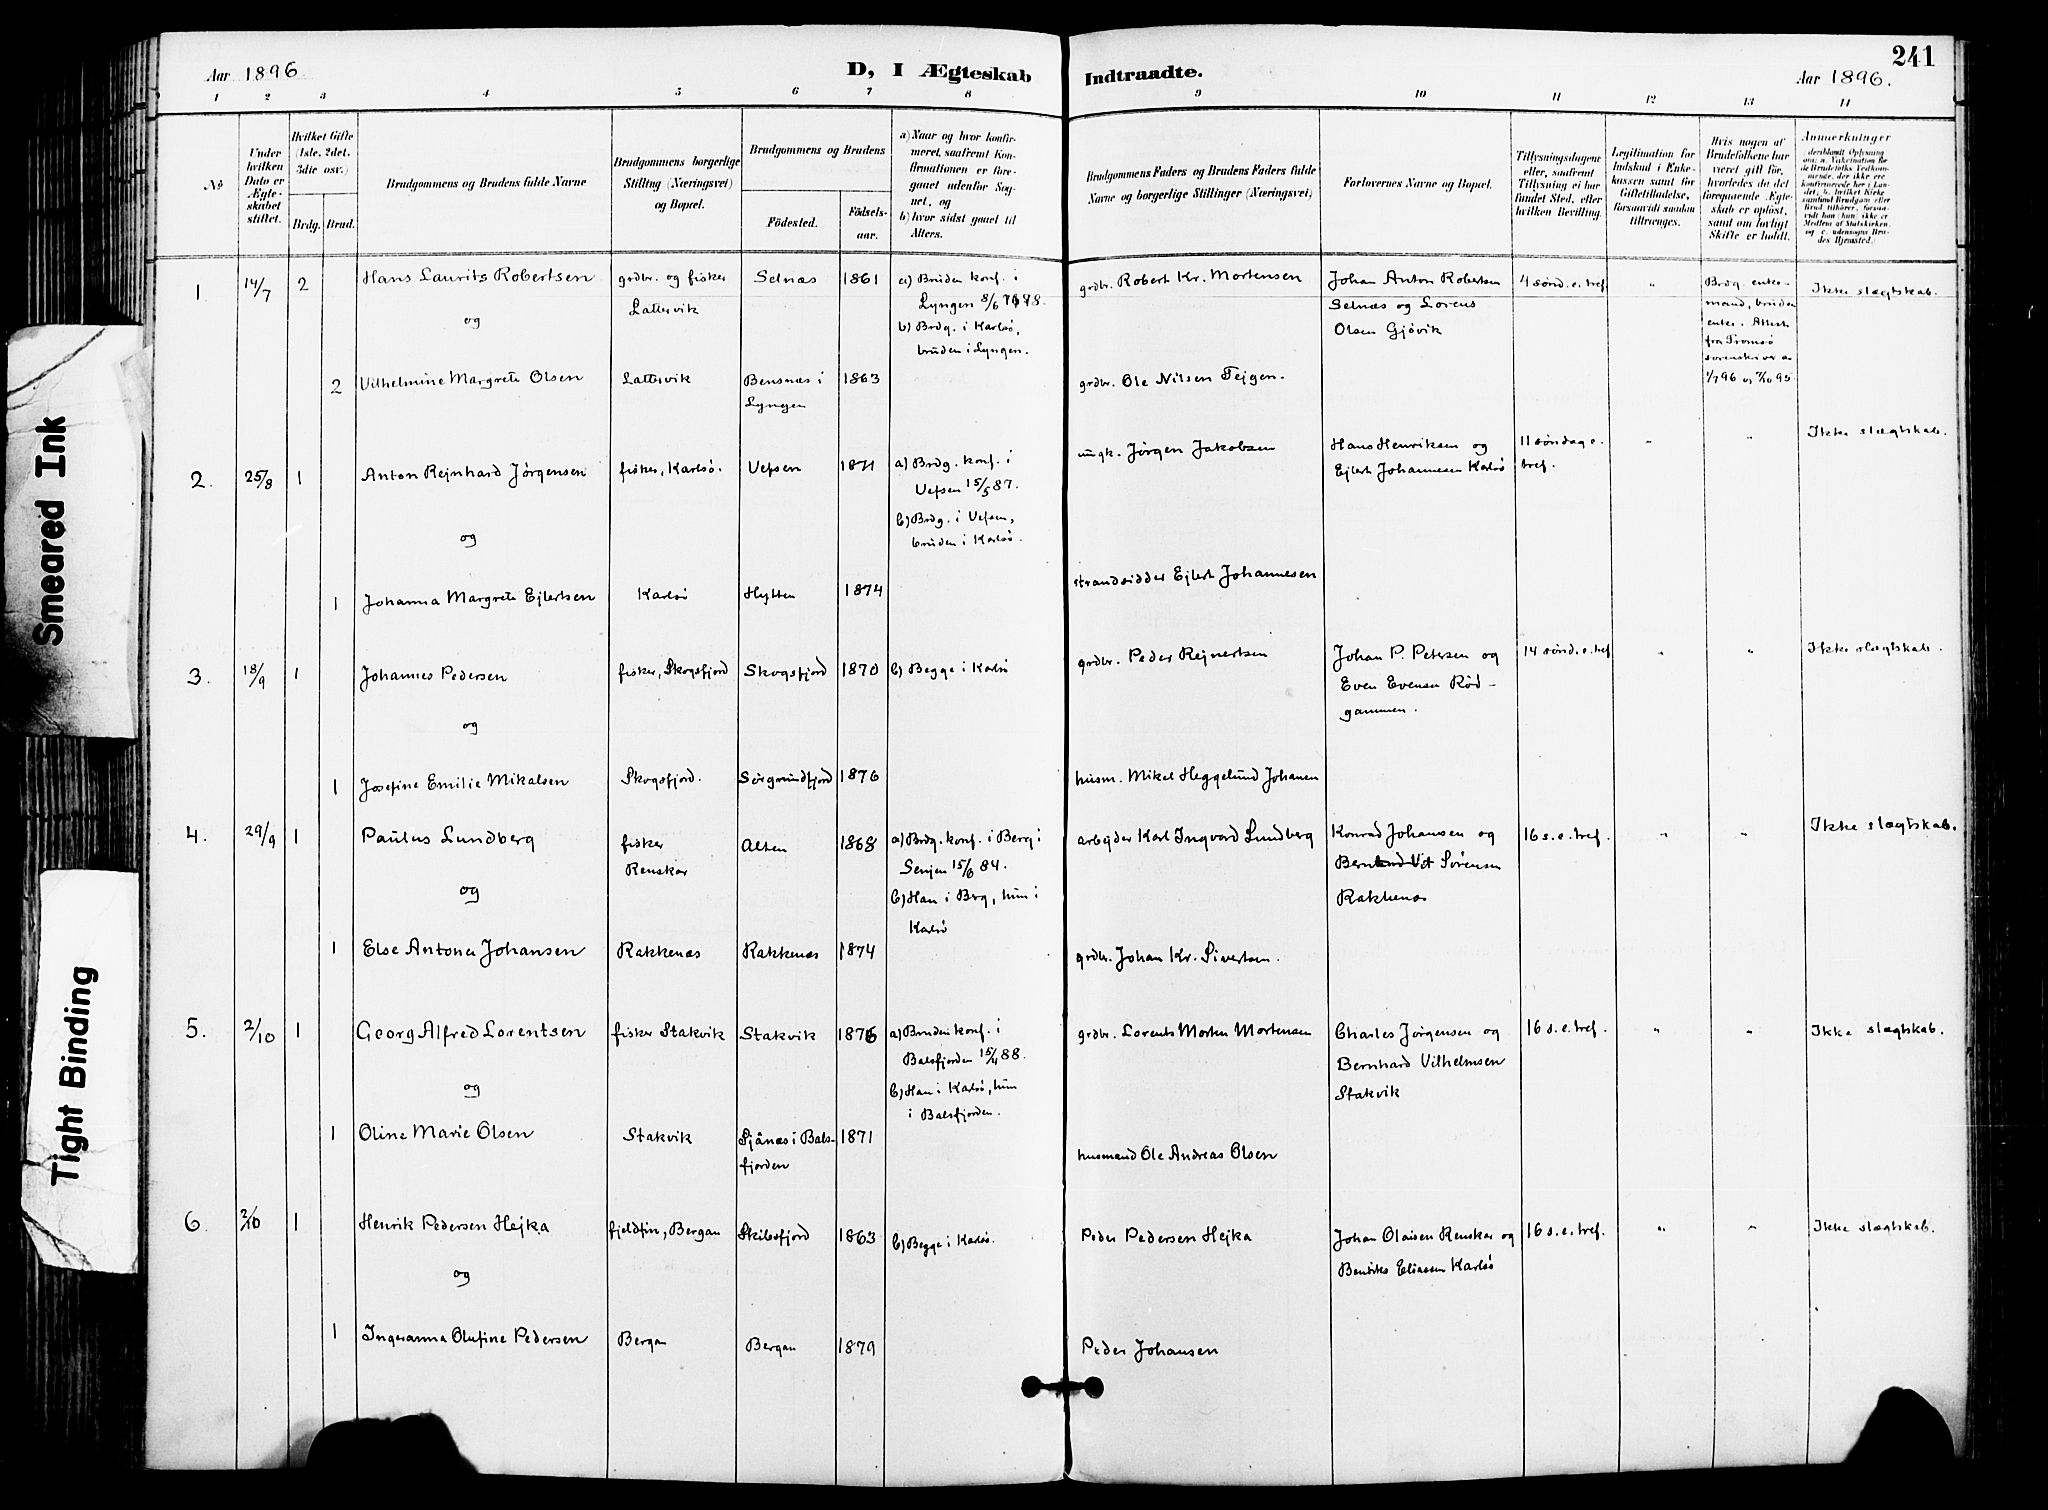 241
Aar 1896.
D, I Ægteskab
Indtraadte.
Aar 1896.
1 2 3 4 5 6 7 8 9 10 11 12 13 14
№
Under hvilken Dato er Ægteskabet stiftet.
Hvilket Gifte (1ste, 2det, 3die osv.)
Brdg. Brud.
Brudgommens og Brudens fulde Navne
Brudgommens borgerlige Stilling (Næringsvei) og Bopæl.
Brudgommens og Brudens
Fødested.
Fødselsaar.
a) Naar og hvor konfirmeret, saafremt Konfirmationen er foregaaet udenfor Sognet, og
b) hvor sidst gaaet til Alters.
Brudgommens Faders og Brudens Faders fulde Navne og borgerlige Stillinger (Næringsvei)
Forlovernes Navne og Bopæl.
Tillysningsdagene eller, saafremt Tillysning ei har fundet Sted, efter hvilken Bevilling.
Legitimation for Indskud i Enkekassen samt for Giftetilladelse, forsaavidt saadan tiltrænges.
Hvis nogen af Brudefolkene har været gift før, hvorledes da det foregaaende Ægteskab er opløst, samt om lovligt Skifte er holdt.
Anmærkninger
1. 14/7 2 Hans Laurits Robertsen grdbr. og fisker Selnæs 1861 a) Bruden konf. i
Lattervik
Lyngen
og
b) Brdg. i Karlsø,
bruden i Lyngen.
grdbr. Robert Kr. Mortensen Johan Anton Robertsen 4 sønd. e. tref. " Brdg. enkemand, bruden enke. Attest fra Tromsø sorenskriver Ikke slægtskab.
Selnæs og Lorens
Olsen Gjøvik
2 Vilhelmine Margrete Olsen Lattervik Bensnæs i 1863
Lyngen
grdbr. Ole Nilsen Tejgen.
2. 25/8 1 Anton Rejnhard Jørgensen fisker, Karlsø. Vefsen 1871 a) Brdg. konf. i
Vefsen 15/5 87.
og
b) Brdg. i Vefsen,
bruden i Karlsø.
ungk. Jørgen Jakobsen Hans Henriksen og 11 søndag e. " " Ikke slægtskab.
Ejlert Johannesen Karlsø tref.
1 Johanna Margrete Ejlertsen Karlsø Hytten 1874
strandsidder Ejlert Johannesen
3. 18/9 1 Johannes Pedersen fisker, Skogsfjord Skogsfjord 1870 b) Begge i Karlsø
og
grdbr. Peder Rejnertsen Johan P. Petersen og 14 sønd. e. tref " " Ikke slægtskab.
Even Evensen Rød-
gammen.
1 Josefine Emilie Mikalsen Skogsfjord. Sørgrundfjord 1876
husm. Mikal Heggelund Johansen
4. 29/9 1 Paulus Lundberg fisker Alten 1868 a) Brdg. konf. i Berg i
Renskar
Senjen 15/6 84.
og
b) Han i Berg, hun i
Karlsø
arbejder Karl Ingvard Lundberg Konrad Johansen og 16 s. e. tref. " " Ikke slægtskab.
Sørensen
Rakkenæs
1 Else Antona Johansen Rakkenæs Rakkenæs 1874
grdbr. Johan Kr. Sivertsen.
5. 2/10 1 Georg Alfred Lorentsen fisker Stakvik Stakvik 1876 a) Bruden konf. i
Balsfjorden 15/4 88.
og
b) Han i Karlsø, hun
i Balsfjorden.
grdbr. Lorents Morten Mortensen Charles Jørgensen og 16 s. e. tref. " " Ikke slægtskab.
Bernhard Vilhelmsen
Stakvik
1 Oline Marie Olsen Stakvik Sjånæs i Bals- 1871
fjorden
husmand Ole Andreas Olsen
6. 2/10 1 Henrik Pedersen Hejka fjeldfin, Bergan Skibsfjord 1863 b) Begge i Karlsø.
og
Peder Pedersen Hejka Johan Olaisen Renskar og 16 s. e. tref. " " Ikke slægtskab.
Bendiks Eliassen Karlsø
1 Ingeranna Olufine Pedersen Bergan Bergan 1879
Peder Johansen
Smeared Ink
Tight Binding